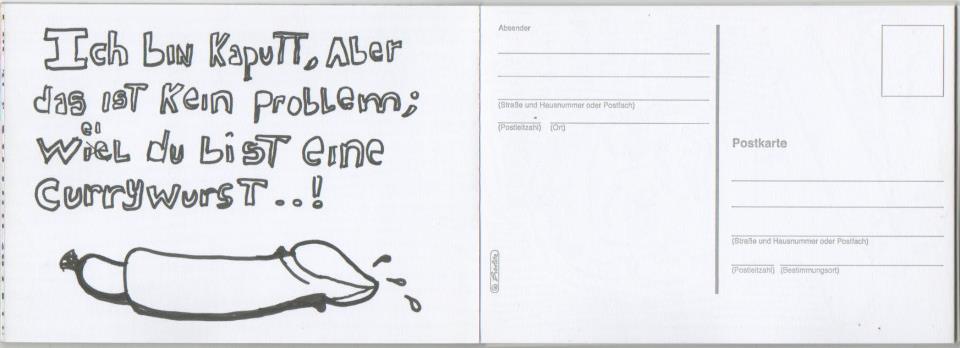 Ich bin Kaputt, Aber
das ist Kein problem;
weil du bist eine
Currywurst..!
Absender
(Straße und Hausnummer oder Postfach)
(Postleitzahl) (Ort)
Postkarte
(Straße und Hausnummer oder Postfach)
(Postleitzahl) (Bestimmungsort)